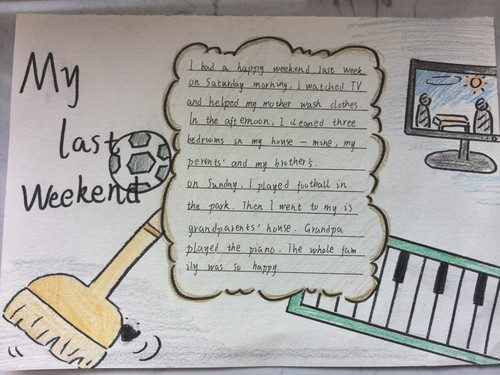 My
last
Weekend
I had a happy weekend last week.
on Saturday morning, I watched TV
and helped my mother wash clothes.
In the afternoon, I cleaned three
bedrooms in my house — mine, my
perents' and my brother's.
on Sunday, I played football in
the park. Then I went to my is
grandparents' house. Grandpa
played the piano. The whole fam
ily was so happy